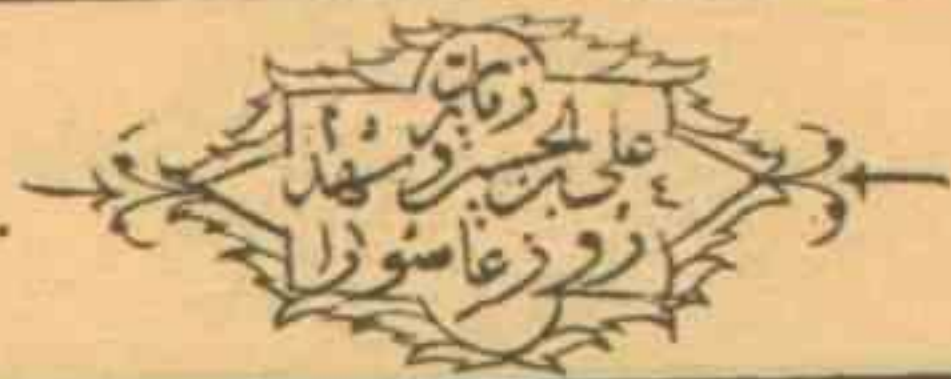 زیارت
علی بن الحسین و شهدا
روز عاشورا